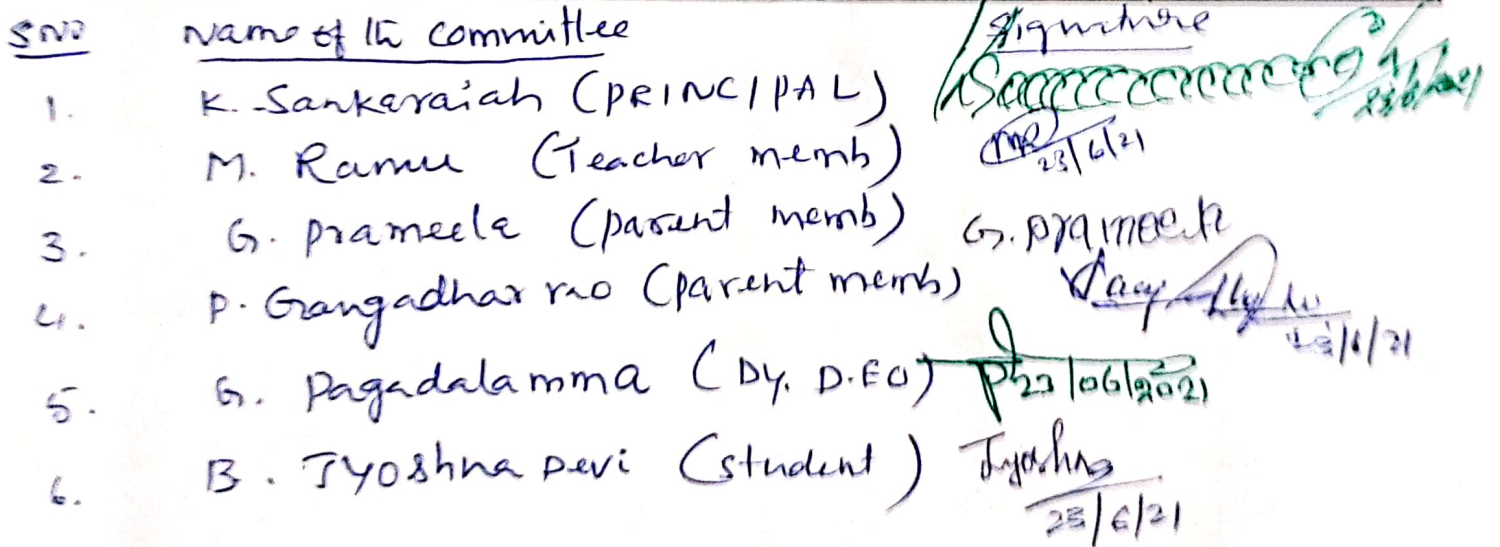 SNO Name of the committee Signature
1. K. Sankaraiah (PRINCIPAL) 23/6/2021
2. M. Ramu (Teacher memb) 23/6/21
3. G. Prameela (parent memb) G. Prameela
4. P. Gangadhar rao (parent memb) 23/6/21
5. G. Pagadalamma (Dy. D.EO) 23/06/2021
6. B. Jyoshna Devi (student) Jyoshna
23/6/21